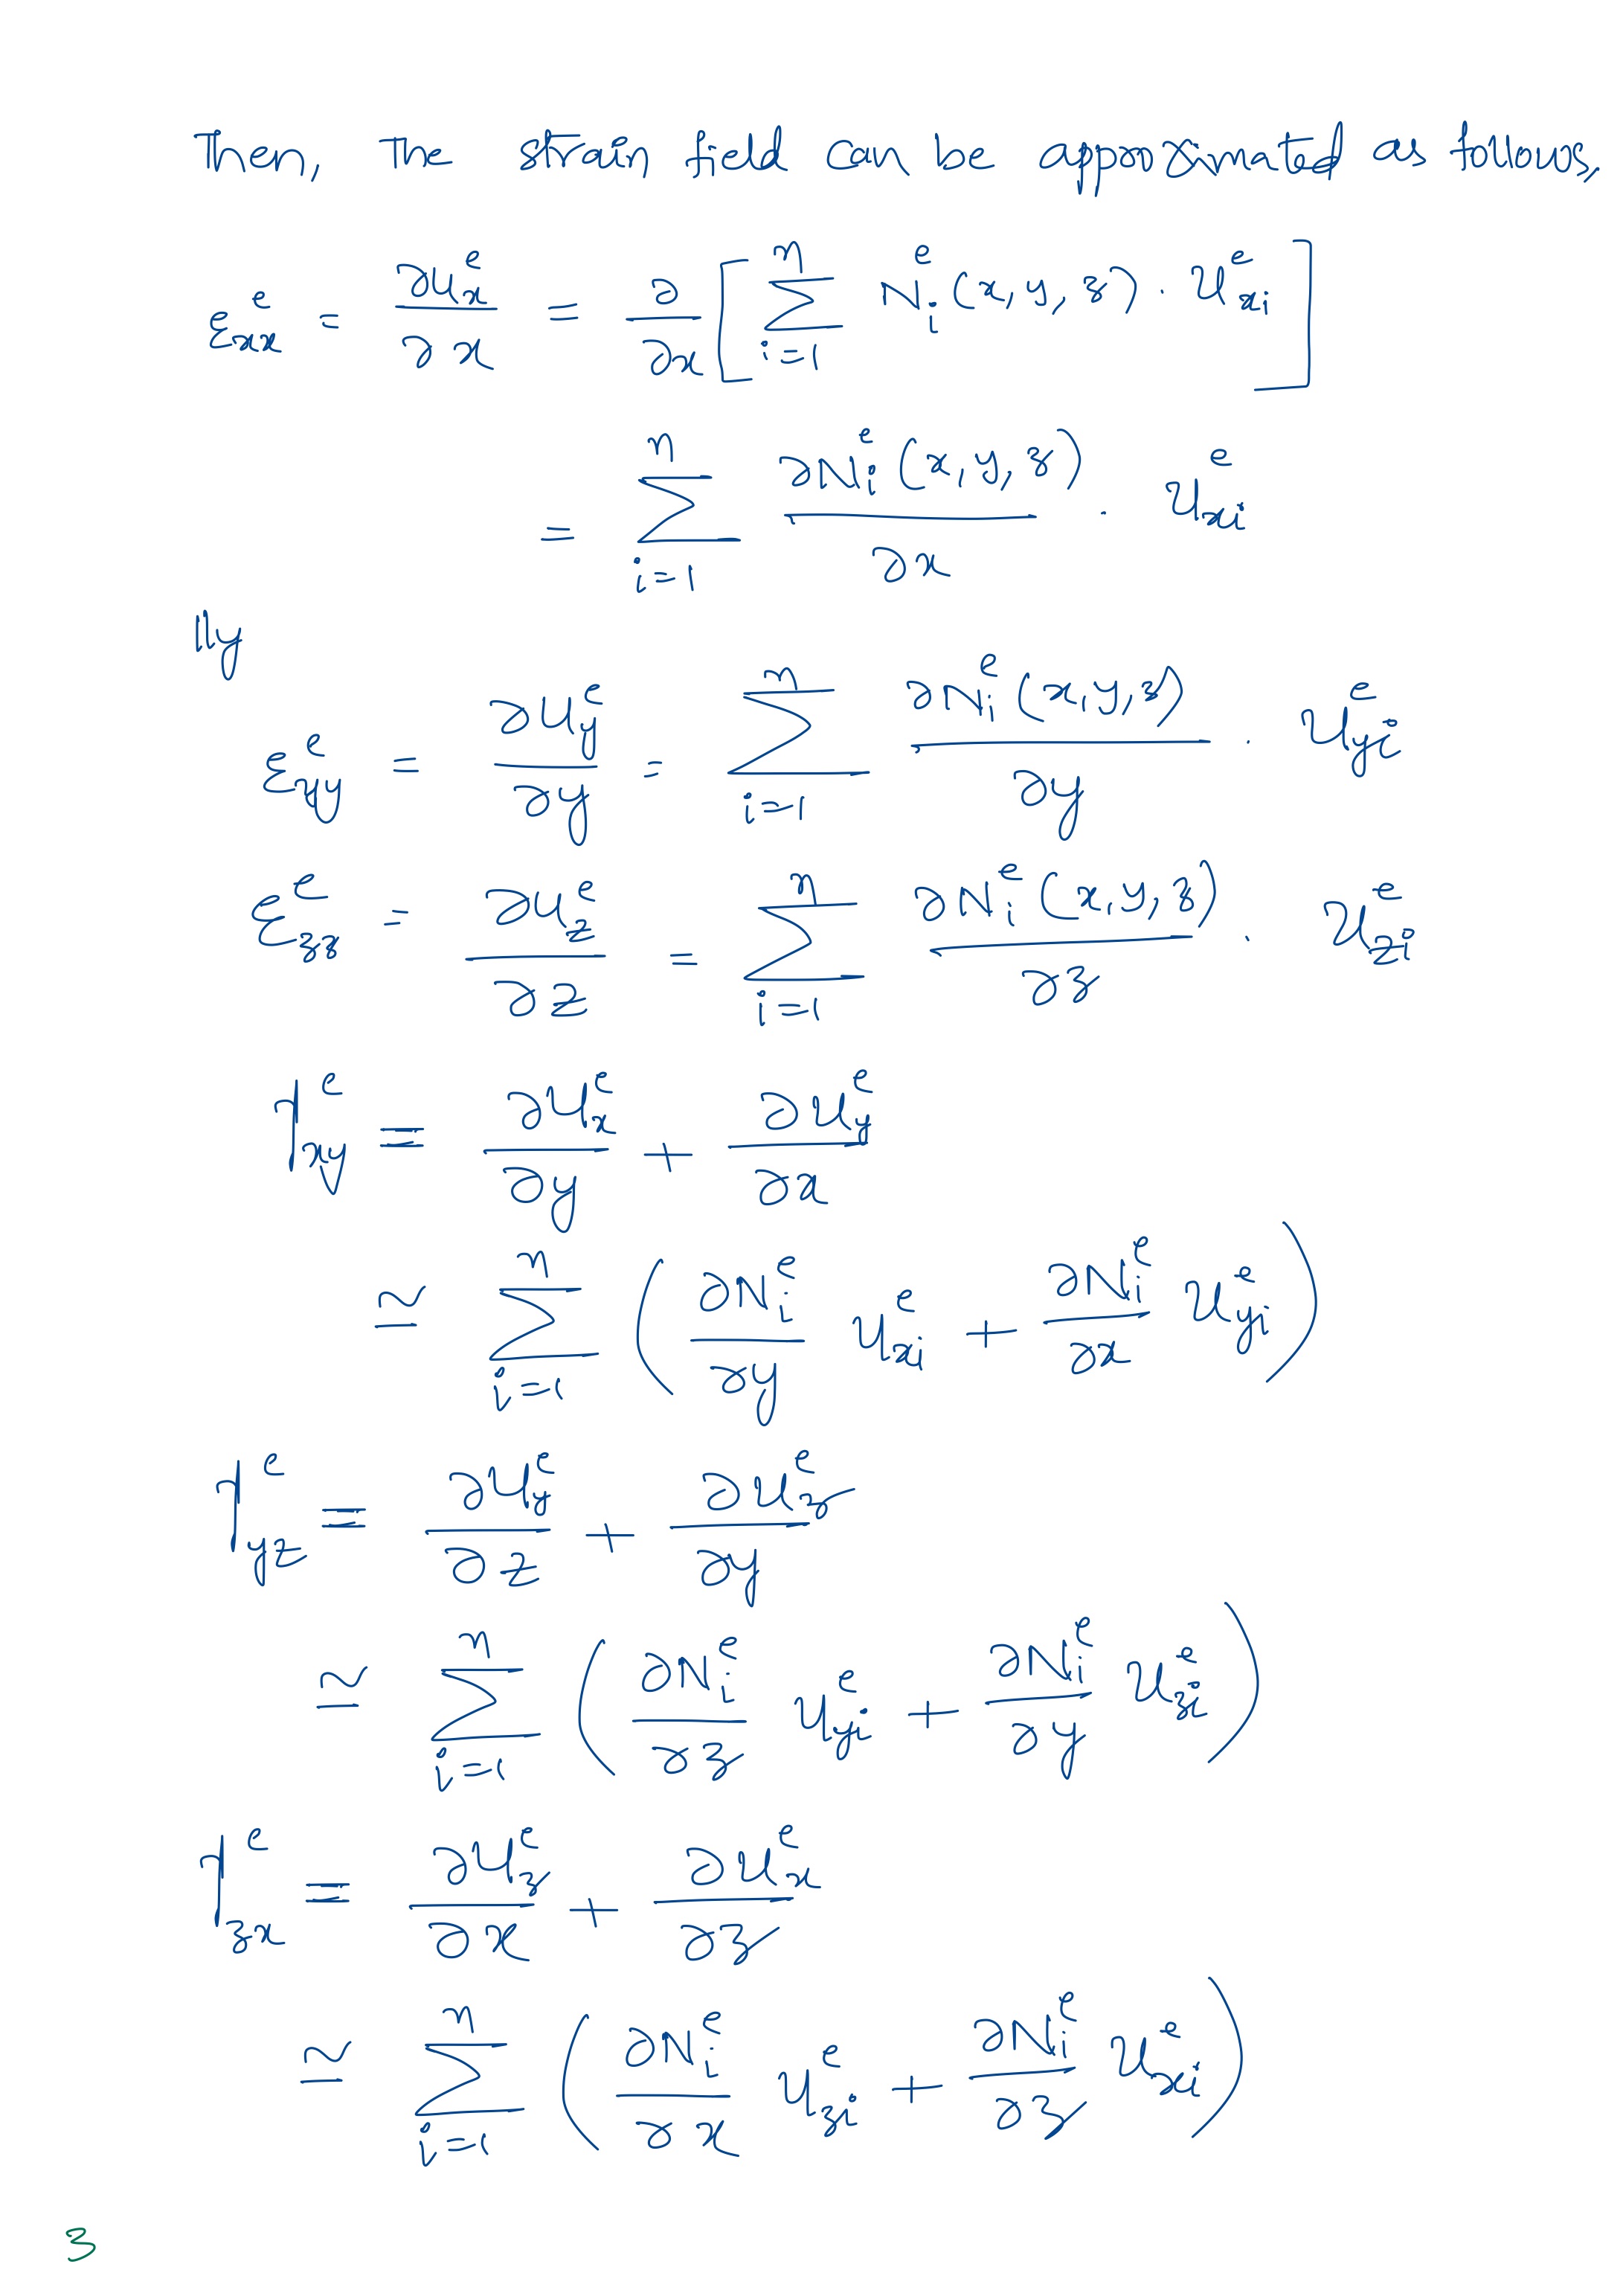 Then, the strain field can be approximated as follows,
ε_{xx}^e = ∂u_x^e/∂x = ∂/∂x [ Σ_{i=1}^{n} N_i^e (x, y, z) · u_{xi}^e ]
= Σ_{i=1}^{n} ∂N_i^e (x, y, z)/∂x · u_{xi}^e
llly
ε_{yy}^e = ∂u_y^e/∂y = Σ_{i=1}^{n} ∂N_i^e (x, y, z)/∂y · u_{yi}^e
ε_{zz}^e = ∂u_z^e/∂z = Σ_{i=1}^{n} ∂N_i^e (x, y, z)/∂z · u_{zi}^e
γ_{xy}^e ≡ ∂u_x^e/∂y + ∂u_y^e/∂x
≃ Σ_{i=1}^{n} ( ∂N_i^e/∂y u_{xi}^e + ∂N_i^e/∂x u_{yi}^e )
γ_{yz}^e ≡ ∂u_y^e/∂z + ∂u_z^e/∂y
≃ Σ_{i=1}^{n} ( ∂N_i^e/∂z u_{yi}^e + ∂N_i^e/∂y u_{zi}^e )
γ_{zx}^e ≡ ∂u_z^e/∂x + ∂u_x^e/∂z
≃ Σ_{i=1}^{n} ( ∂N_i^e/∂x u_{zi}^e + ∂N_i^e/∂z u_{xi}^e )
3